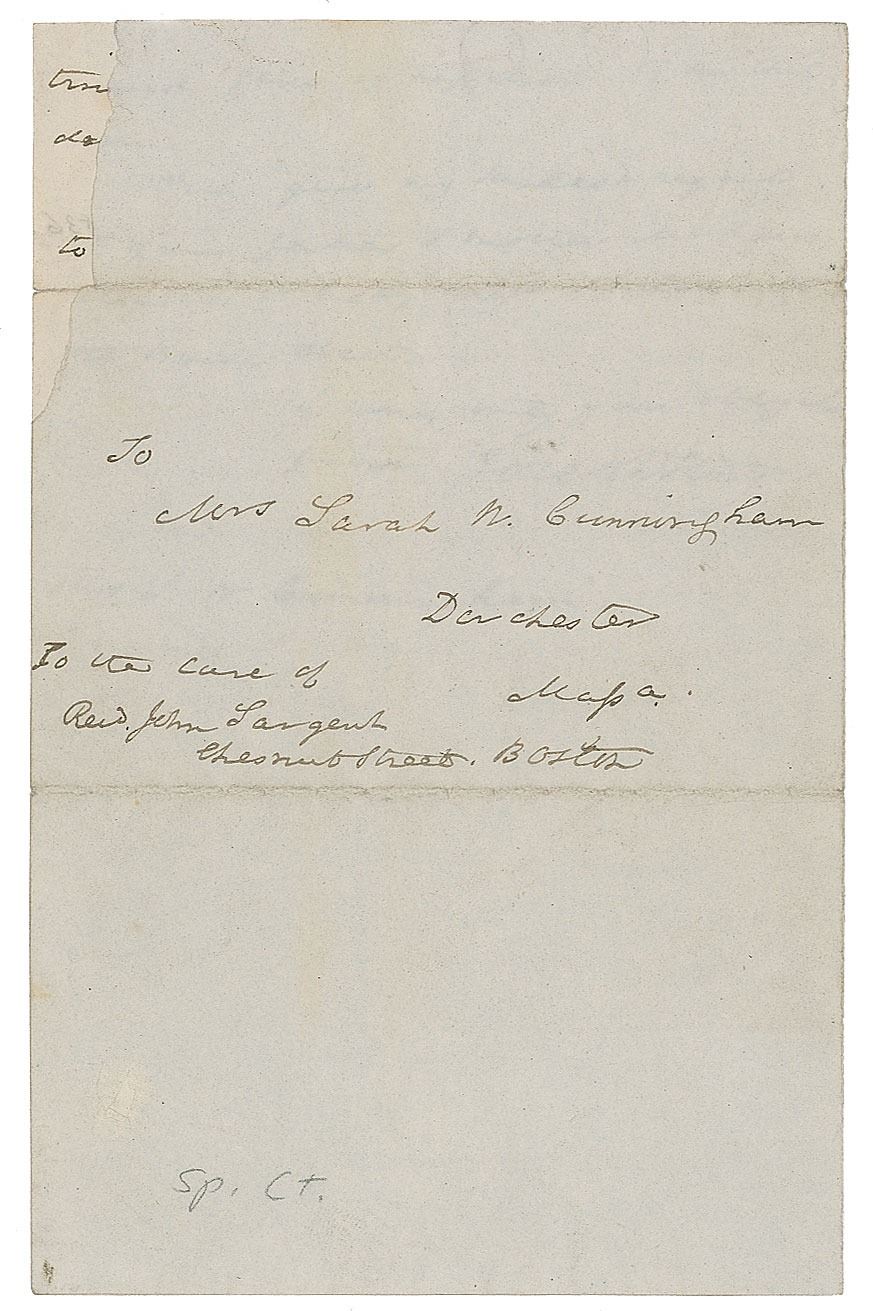 do
to
To
Mrs Sarah N. Cunningham
Dorchester
Massa.
To the care of
Revd. John Sargent
Chesnut Street. Boston
Sp. Ct.